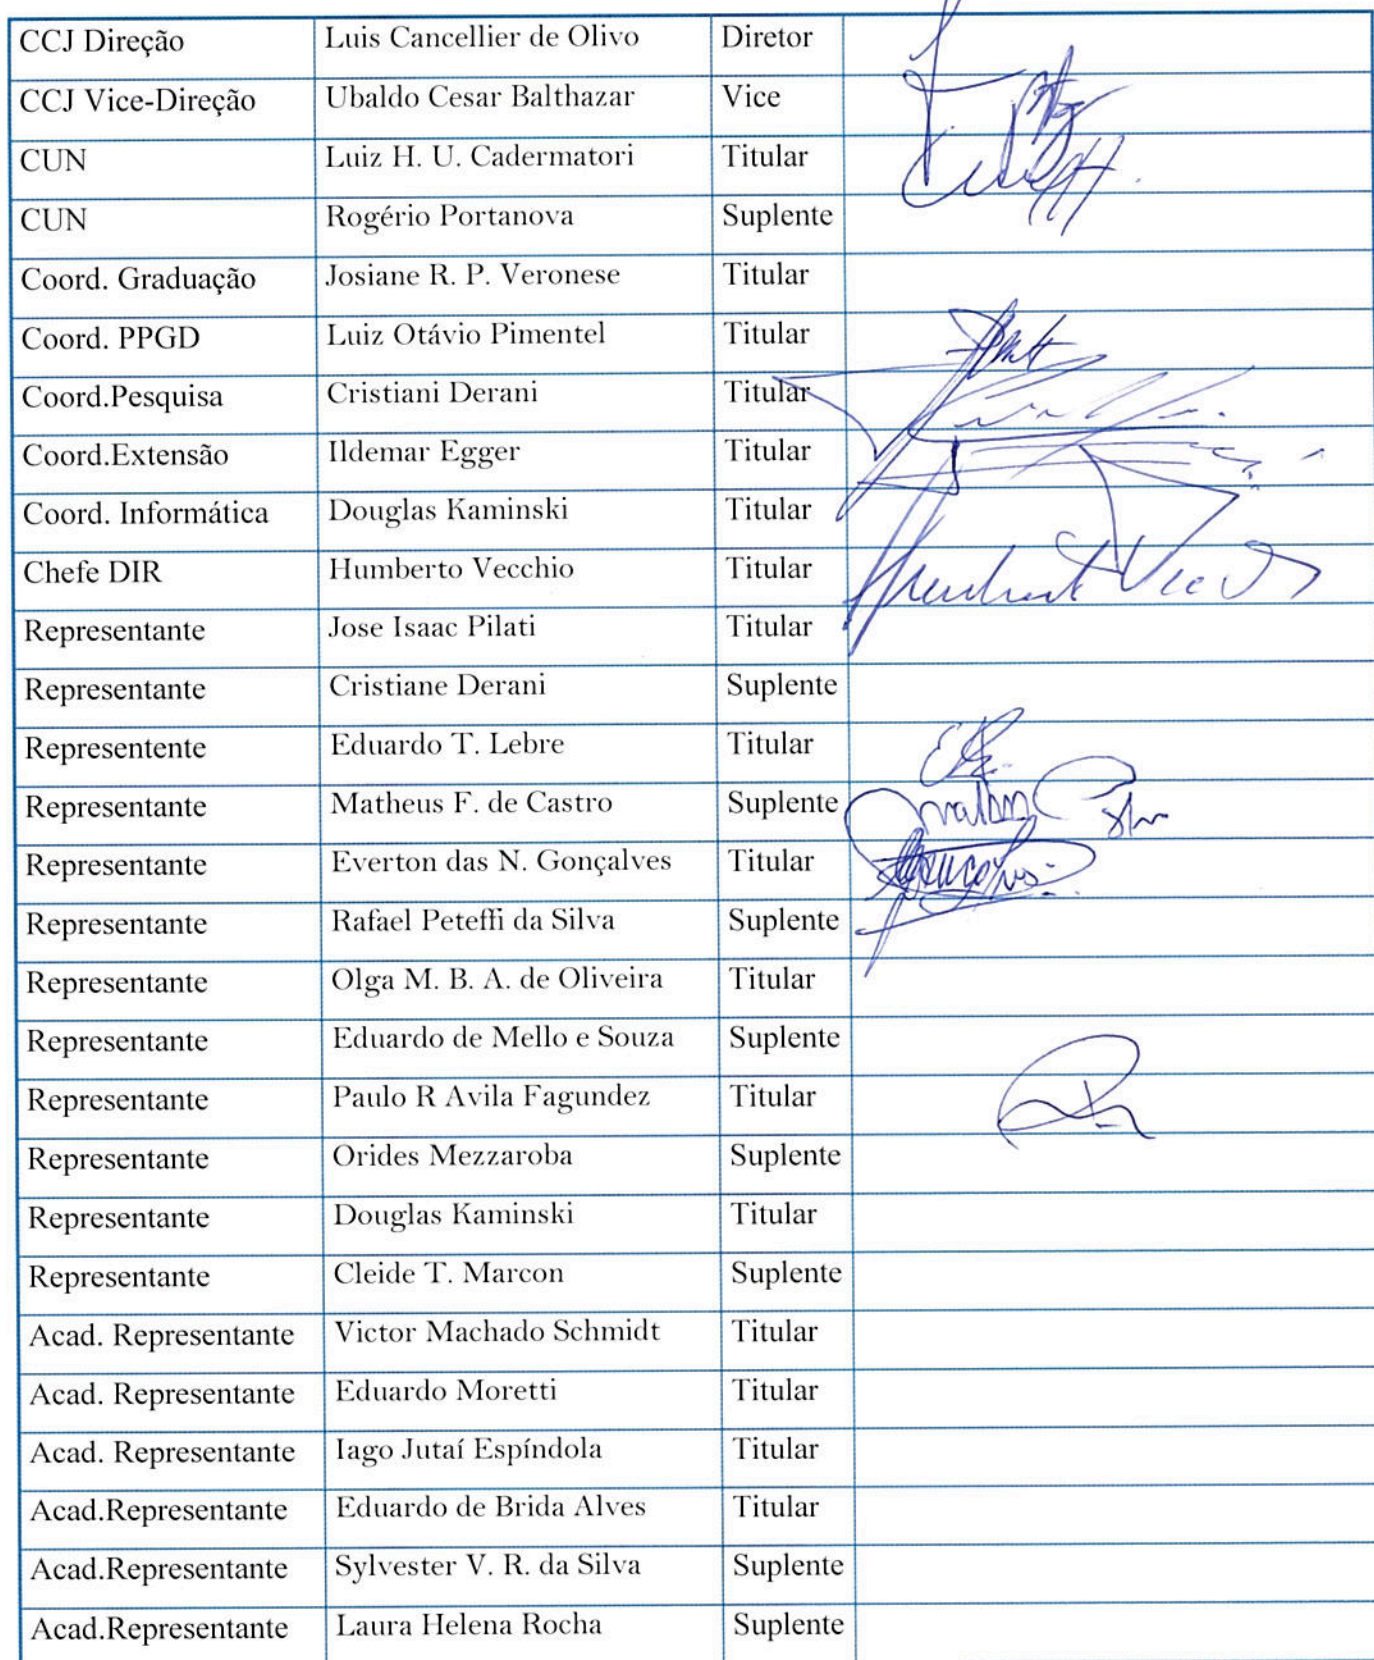 CCJ Direção Luis Cancellier de Olivo Diretor
CCJ Vice-Direção Ubaldo Cesar Balthazar Vice
CUN Luiz H. U. Cadermatori Titular
CUN Rogério Portanova Suplente
Coord. Graduação Josiane R. P. Veronese Titular
Coord. PPGD Luiz Otávio Pimentel Titular
Coord.Pesquisa Cristiani Derani Titular
Coord.Extensão Ildemar Egger Titular
Coord. Informática Douglas Kaminski Titular
Chefe DIR Humberto Vecchio Titular
Representante Jose Isaac Pilati Titular
Representante Cristiane Derani Suplente
Representente Eduardo T. Lebre Titular
Representante Matheus F. de Castro Suplente
Representante Everton das N. Gonçalves Titular
Representante Rafael Peteffi da Silva Suplente
Representante Olga M. B. A. de Oliveira Titular
Representante Eduardo de Mello e Souza Suplente
Representante Paulo R Avila Fagundez Titular
Representante Orides Mezzaroba Suplente
Representante Douglas Kaminski Titular
Representante Cleide T. Marcon Suplente
Acad. Representante Victor Machado Schmidt Titular
Acad. Representante Eduardo Moretti Titular
Acad. Representante Iago Jutaí Espíndola Titular
Acad.Representante Eduardo de Brida Alves Titular
Acad.Representante Sylvester V. R. da Silva Suplente
Acad.Representante Laura Helena Rocha Suplente